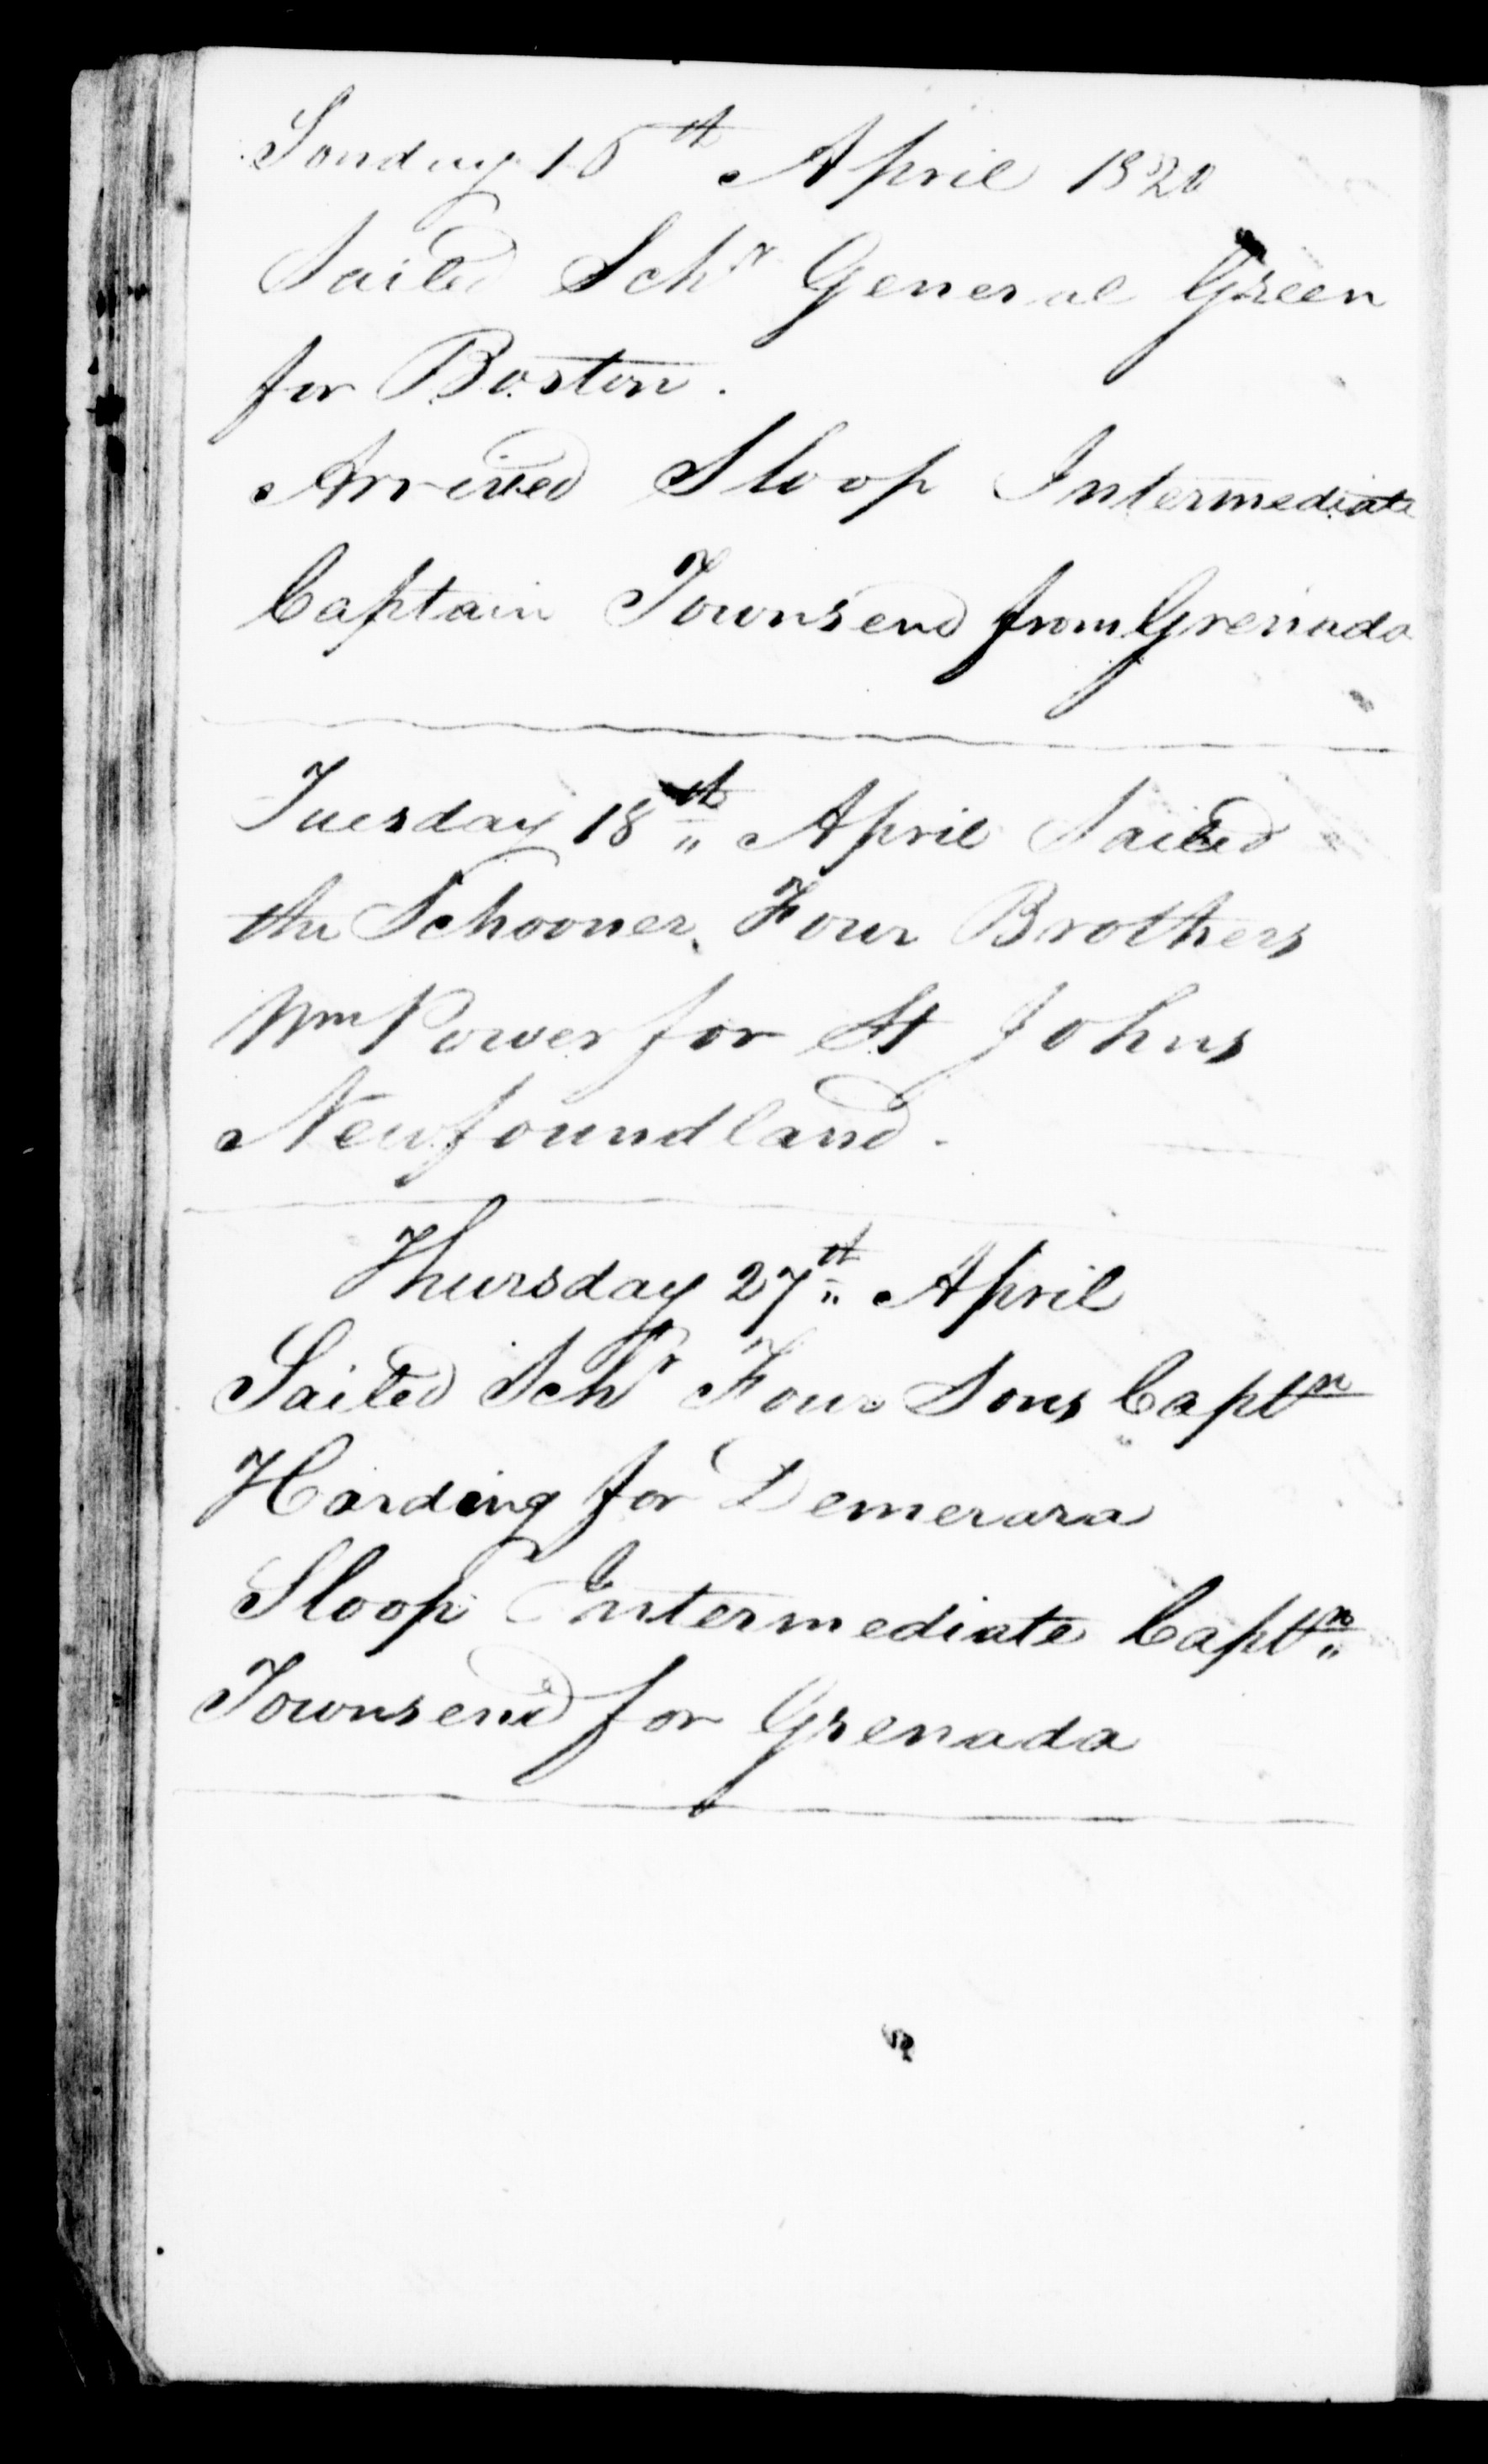 Sonday 16th April 1820
Sailed Schr General Green
for Boston.
Arrived Sloop Intermediate
Captain Townsend from Grenada
Tuesday 18th April Sailed
the Schooner Four Brothers
Wm Power for St Johns
Newfoundland.
Thursday 27th April
Sailed Schr Four Sons Captn
Harding for Demerara
Sloop Intermediate Captn
Townsend for Grenada